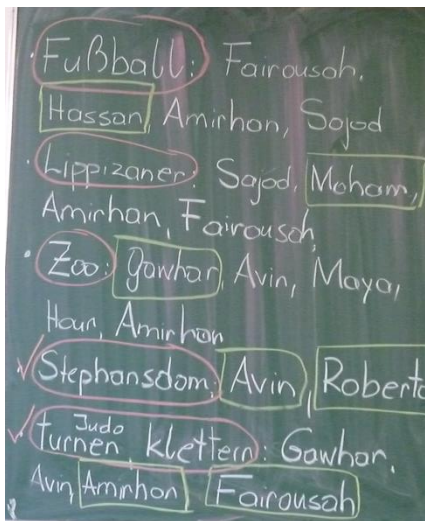 · Fußball: Fairousah,
Hassan, Amirhan, Sajad
· Lippizaner: Sajad, Moham,
Amirhan, Fairousah,
· Zoo: Gawhar, Avin, Maya,
Haun, Amirhan
✓ Stephansdom: Avin, Roberto
Judo
✓ turnen, klettern: Gawhar,
Avin, Amirhan Fairousah